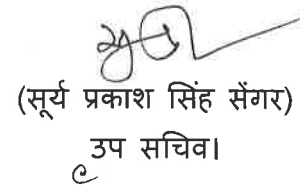 (सूर्य प्रकाश सिंह सेंगर)
उप सचिव।